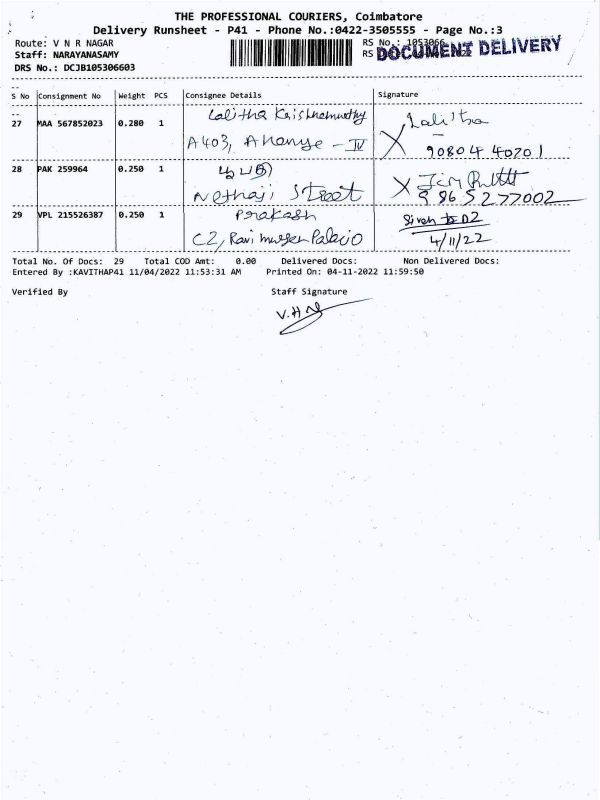 THE PROFESSIONAL COURIERS, Coimbatore
Delivery Runsheet - P41 - Phone No.:0422-3505555 - Page No.:3
Route: V N R NAGAR
RS No.: 1053066
Staff: NARAYANASAMY
RS
DOCUMENT DELIVERY
DRS No.: DCJB105306603
S No Consignment No Weight PCS Consignee Details Signature
27 MAA 567852023 0.280 1 Lalitha Krishnamurthy Lalitha
A403, Ananya - IV X 90804 40201
28 PAK 259964 0.250 1 X
Nethaji Street 9865277002
29 VPL 215526387 0.250 1 Prakash Given to D2
C2, Ravi 4/11/22
Total No. Of Docs: 29 Total COD Amt: 0.00 Delivered Docs: Non Delivered Docs:
Entered By :KAVITHAP41 11/04/2022 11:53:31 AM Printed On: 04-11-2022 11:59:50
Verified By Staff Signature
V.H